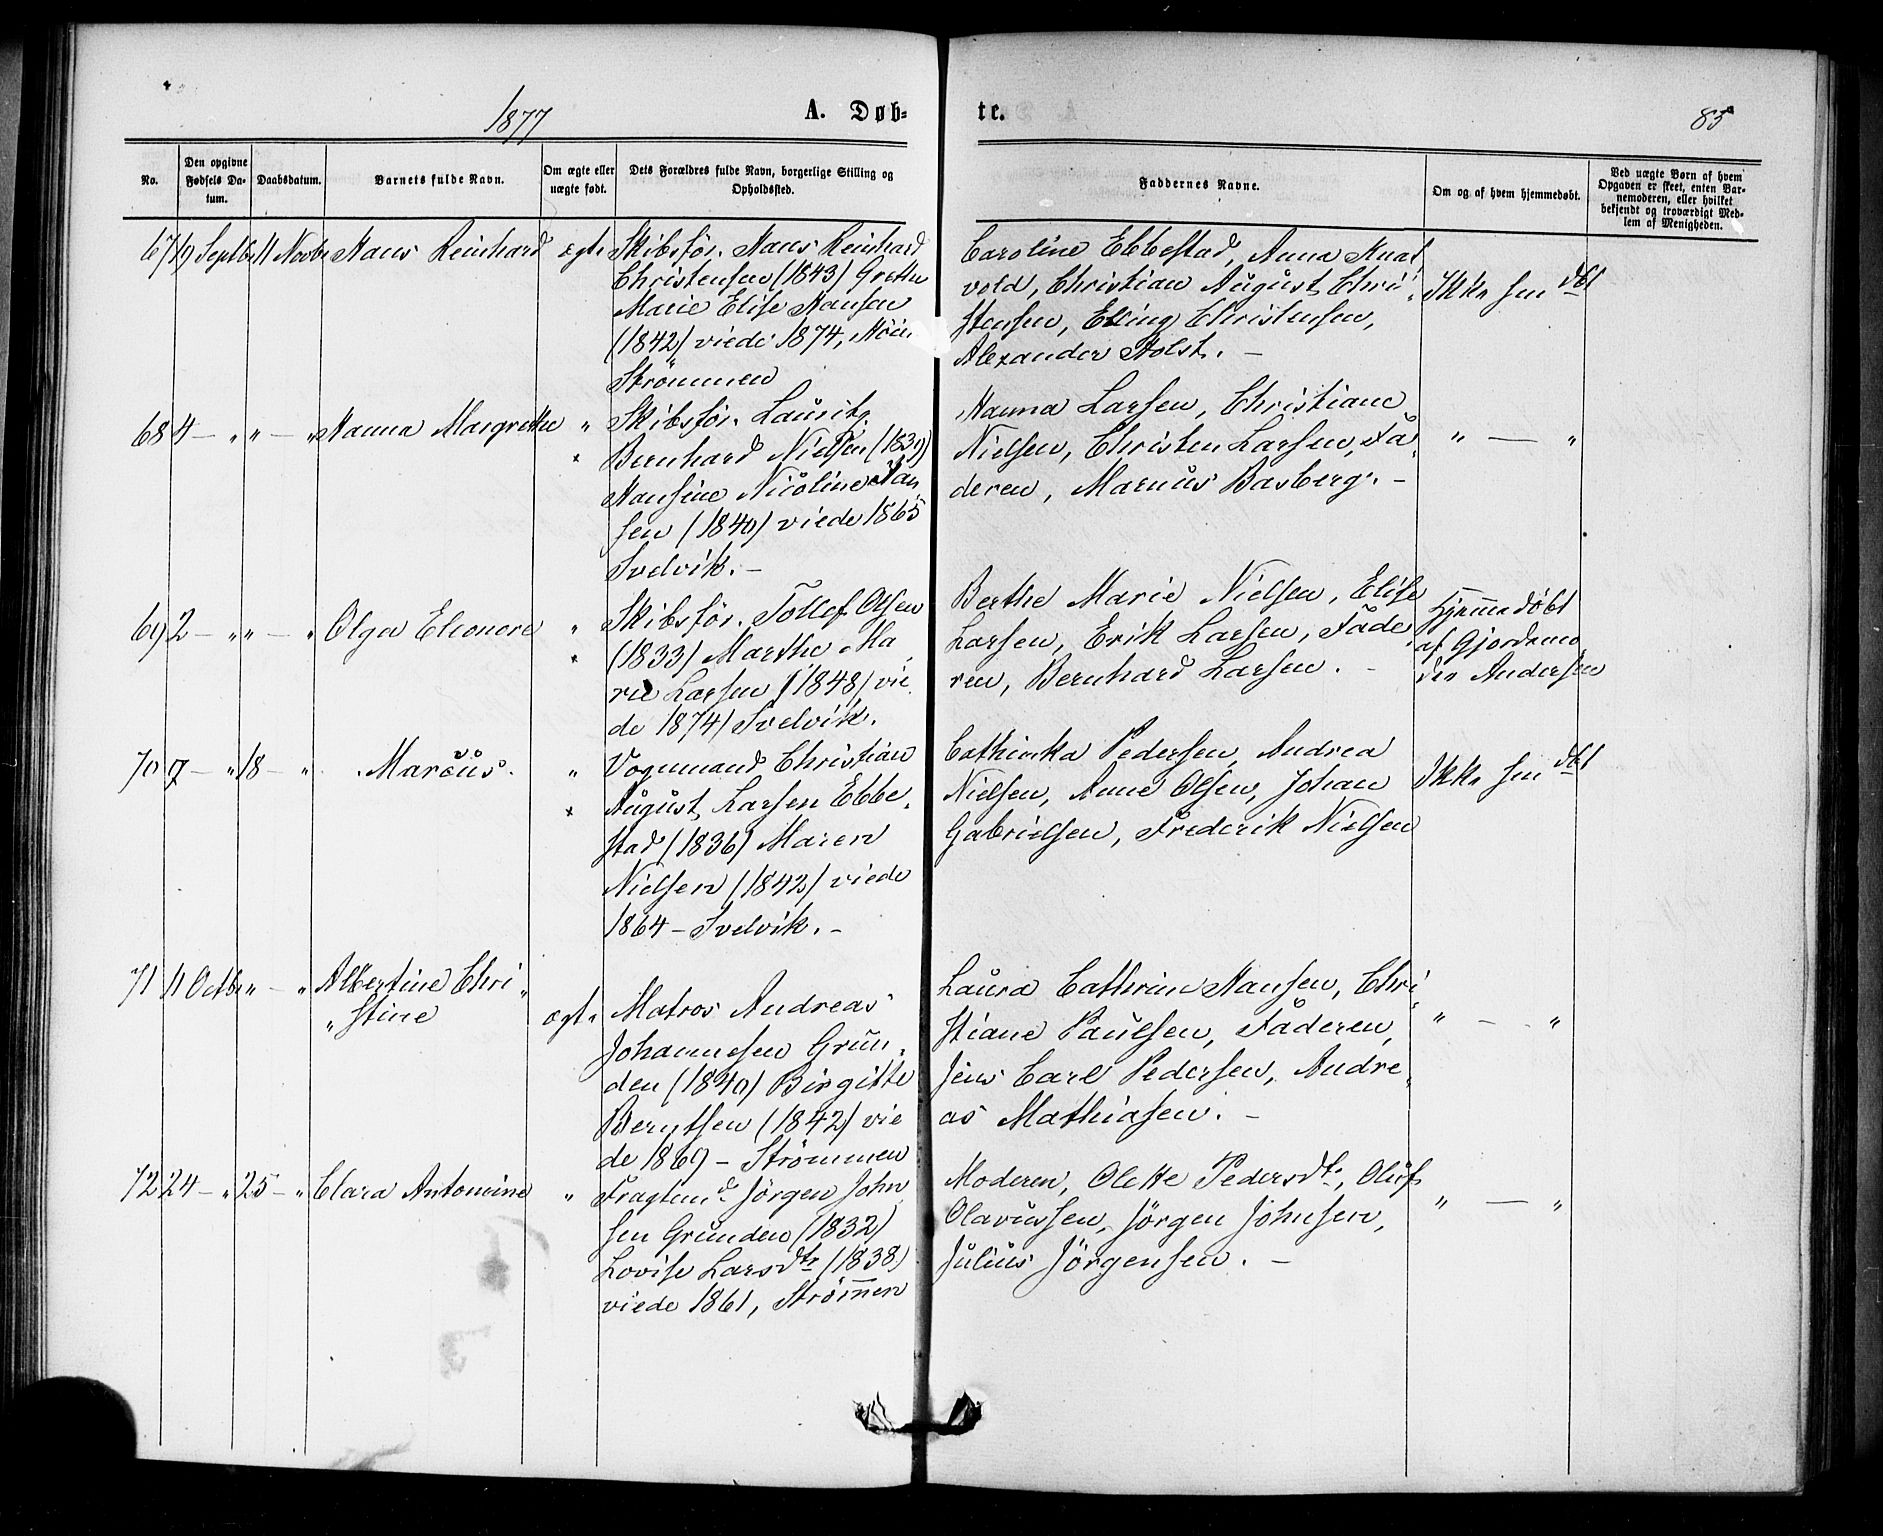 1877
A. Døb=
te.
85
No.
Den opgivne Fødsels Da-tum.
Daabsdatum.
Barnets fulde Navn.
Om ægte eller uægte født.
Dets Forældres fulde Navn, borgerlige Stilling og Opholdssted.
Faddernes Navne.
Om og af hvem hjemmedøbt.
Ved uægte Børn af hvem Opgaven er skeet, enten Bar-nemoderen, eller hvilket bekjendt og troværdigt Med-lem af Menigheden.
67 19 Septbr 11 Novbr Hans Reinhard ægte Skibsfør. Hans Reinhard
Christensen (1843) Grethe
Marie Elise Hansen
(1842) viede 1874,
Strømmen
Caroline Ebbestad, Anna Knat
vold, Christian August Chri-
stensen, Elling Christensen,
Alexander Holst. –
Ikke hmdbt
68 4 – " " – " Hanna Margrethe " Skibsfør. Lauritz
Bernhard Nielsen (1839)
Hansine Nicoline Han
sen (1840) viede 1865
Svelvik. –
Hanna Larsen, Christiane
Nielsen, Christen Larsen, Fa-
deren, Marius Basberg. –
" — "
69 2 – " " – " Olga Eleonore " Skibsfør. Tollef Olsen
(1833) Marthe Ma-
rie Larsen (1848) vie-
de 1874) Svelvik.
Berthe Marie Nielsen, Elise
Larsen, Erik Larsen, Fade-
ren, Bernhard Larsen. –
Hjemmedøbt
af Gjordemo
der Andersen
70 7 – " 18 – " Marcus. " Vognmand Christian
August Larsen Ebbe-
stad (1836) Maren
Nielsen (1842) viede
1864 – Svelvik. –
Cathinka Pedersen, Andrea
Nielsen, Anne Olsen, Johan
Gabrielsen, Frederik Nielsen
Ikke hmdbt
71 11 Octbr " – " Albertine Chri-
stine ægte Matros Andreas
Johannesen Grun-
den (1840) Birgitte
Berntsen (1842) vie
de 1869 – Strømmen
Laura Cathrine Hansen, Chri-
stiane Paulsen, Faderen,
Jens Carl Pedersen, Andre-
as Mathiasen. –
" – "
72 24 – " 25 – " Clara Antonine " Fragtemd. Jörgen John
sen Grunden (1832)
Lovise Larsdtr (1838)
viede 1861, Strømmen
Moderen, Olette Pedersdtr, Oluf
Olavussen, Jörgen Johnsen,
Julius Jörgensen. –
" — "